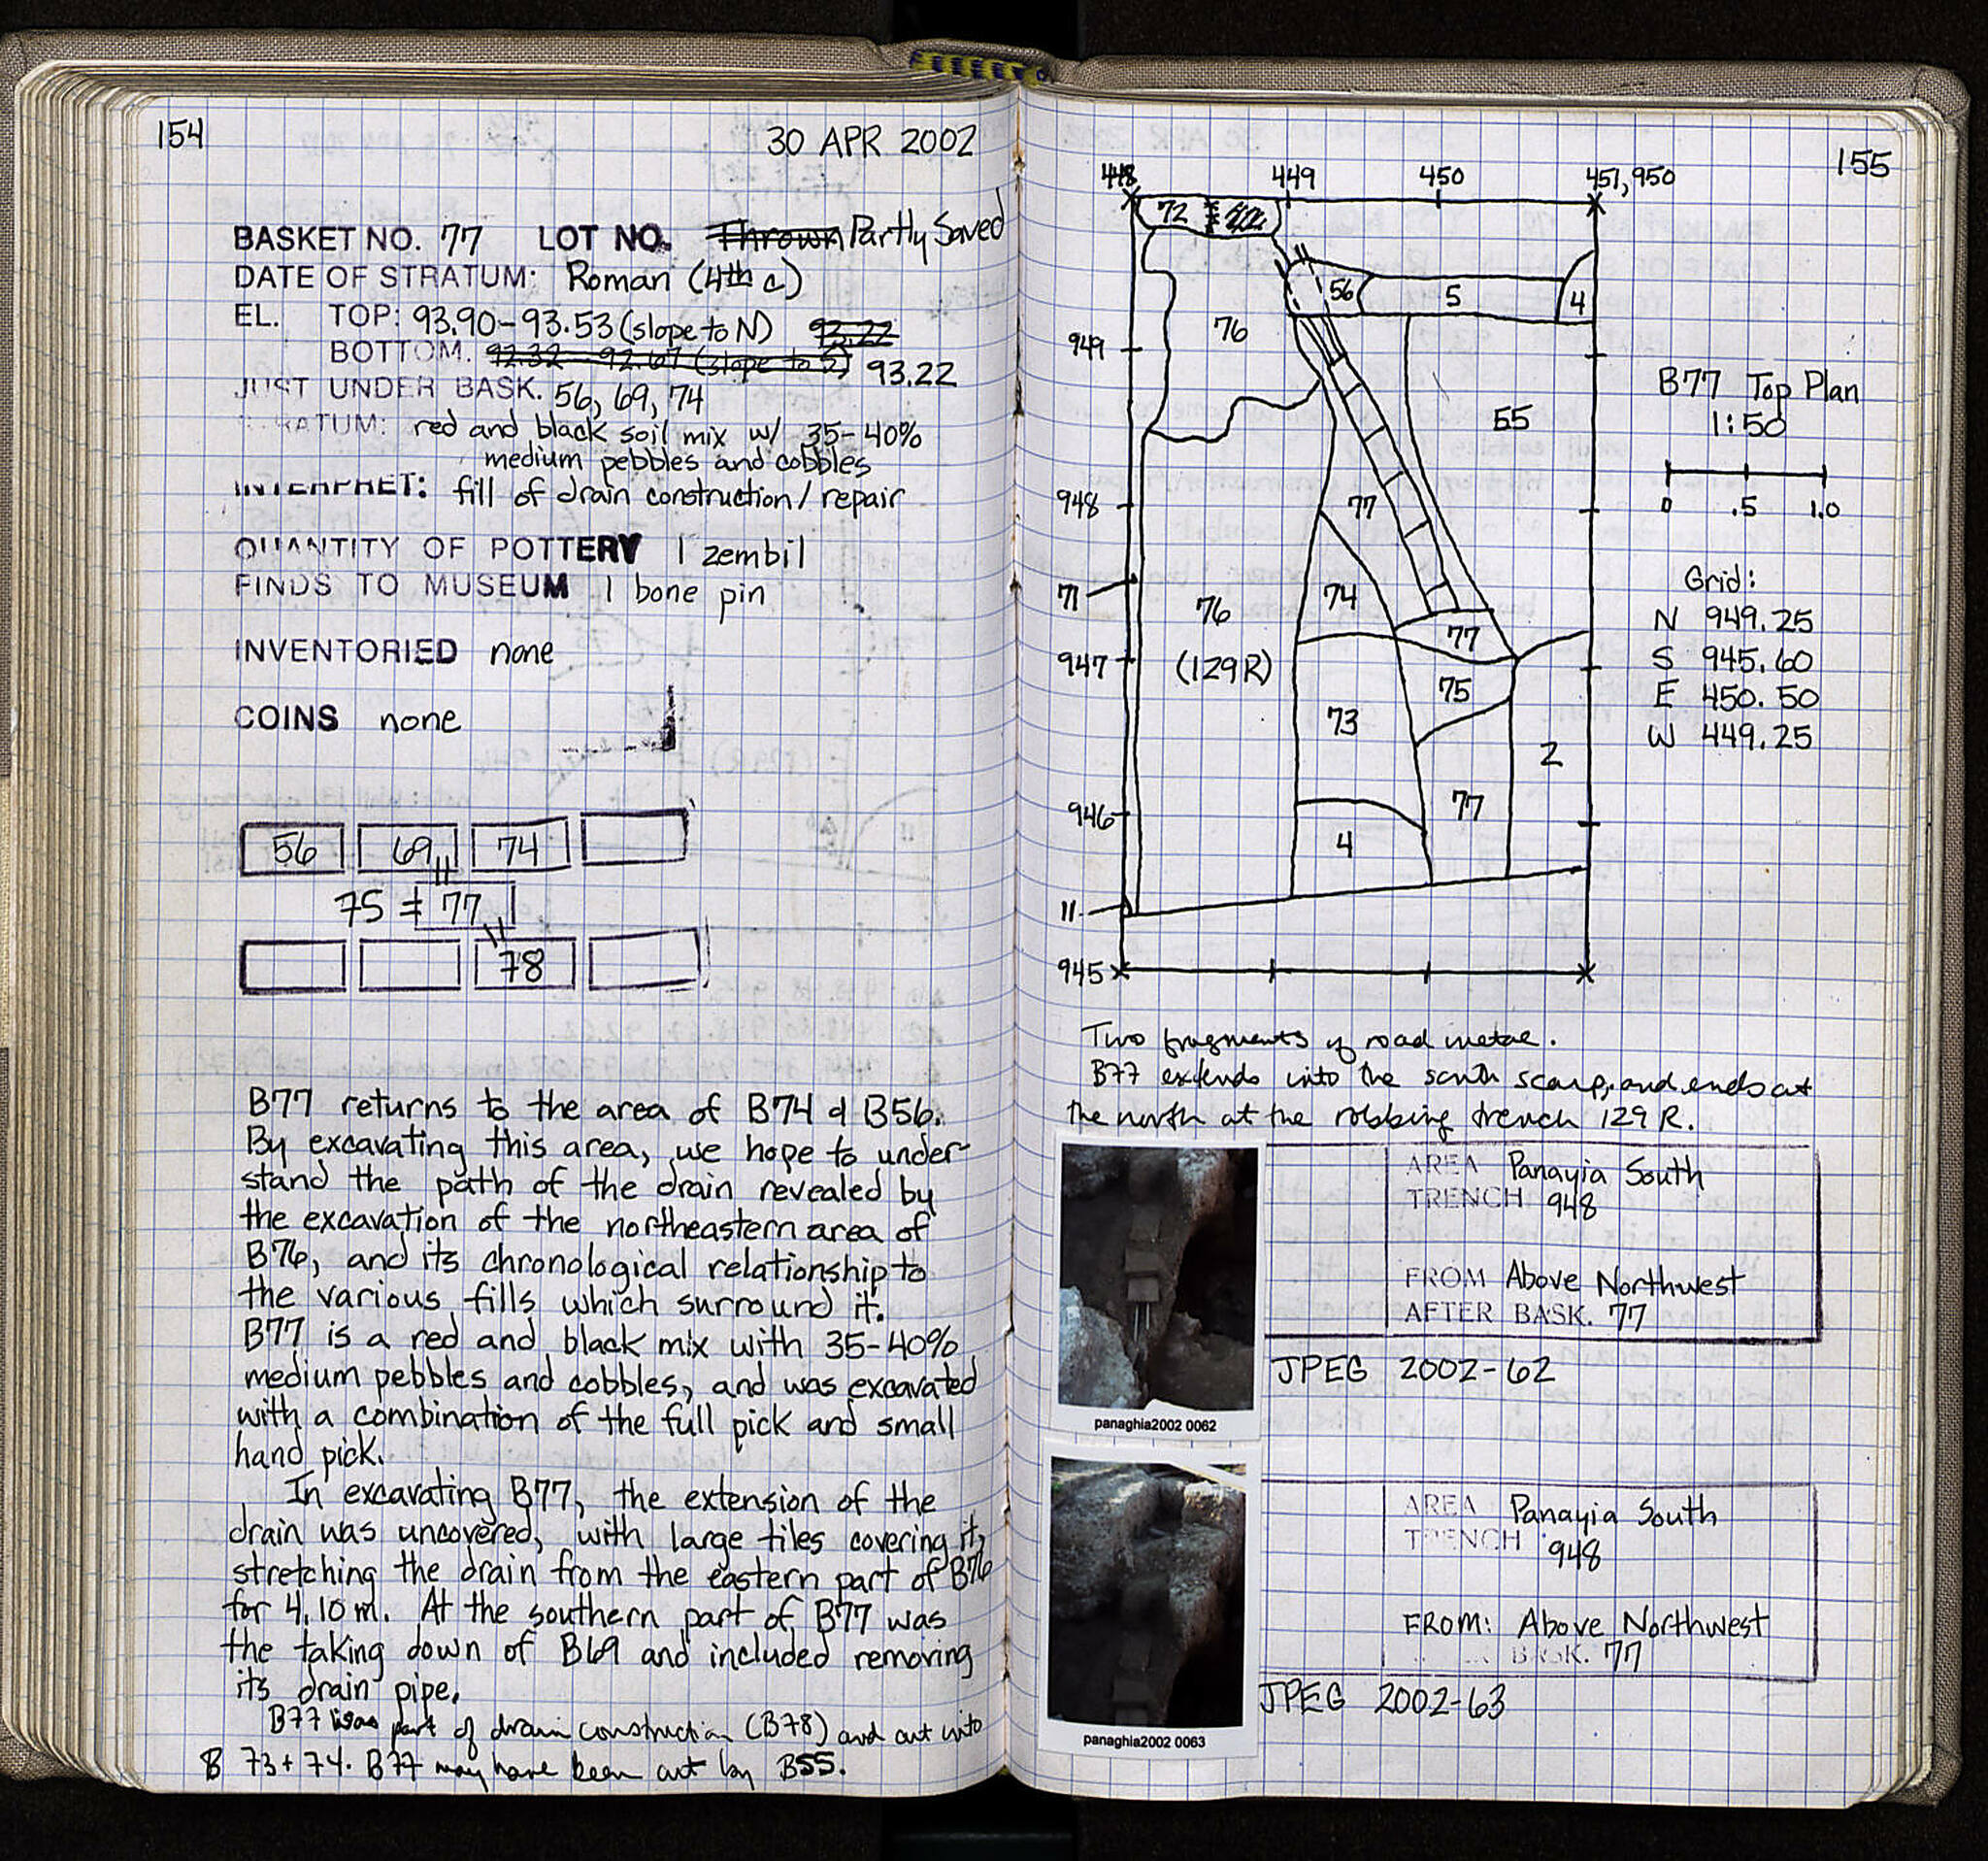 154
30 APR 2002
BASKET NO. 77 LOT NO. Thrown Partly Saved
DATE OF STRATUM: Roman (4th c)
EL. TOP: 93.90-93.53 (slope to N) 93.22
BOTTOM. 92.32-92.67 (slope to S) 93.22
JUST UNDER BASK. 56, 69, 74
STRATUM: red and black soil mix w/ 35-40%
medium pebbles and cobbles
INTERPRET: fill of drain construction / repair
QUANTITY OF POTTERY 1 zembil
FINDS TO MUSEUM 1 bone pin
INVENTORIED none
COINS none
56 69 74
75 = 77
78
B77 returns to the area of B74 & B56.
By excavating this area, we hope to under-
stand the path of the drain revealed by
the excavation of the northeastern area of
B76, and its chronological relationship to
the various fills which surround it.
B77 is a red and black mix with 35-40%
medium pebbles and cobbles, and was excavated
with a combination of the full pick and small
hand pick.
In excavating B77, the extension of the
drain was uncovered, with large tiles covering it,
stretching the drain from the eastern part of B76
for 4.10 m. At the southern part of B77 was
the taking down of B69 and included removing
its drain pipe.
B77 was part of drain construction (B78) and cut into
B 73 + 74. B77 may have been cut by B55.
155
448 449 450 451, 950
72
56 5 4
76
949
55
B77 Top Plan
1:50
0 .5 1.0
948
77
71
74
76
77
947
(129 R)
75
73
2
946
77
4
11
945
Grid:
N 949.25
S 945.60
E 450.50
W 449.25
Two fragments of road metal.
B77 extends into the south scarp, and ends at
the north at the robbing trench 129 R.
AREA Panayia South
TRENCH 948
FROM Above Northwest
AFTER BASK. 77
JPEG 2002-62
panaghia2002 0062
AREA Panayia South
TRENCH 948
FROM: Above Northwest
BASK. 77
JPEG 2002-63
panaghia2002 0063